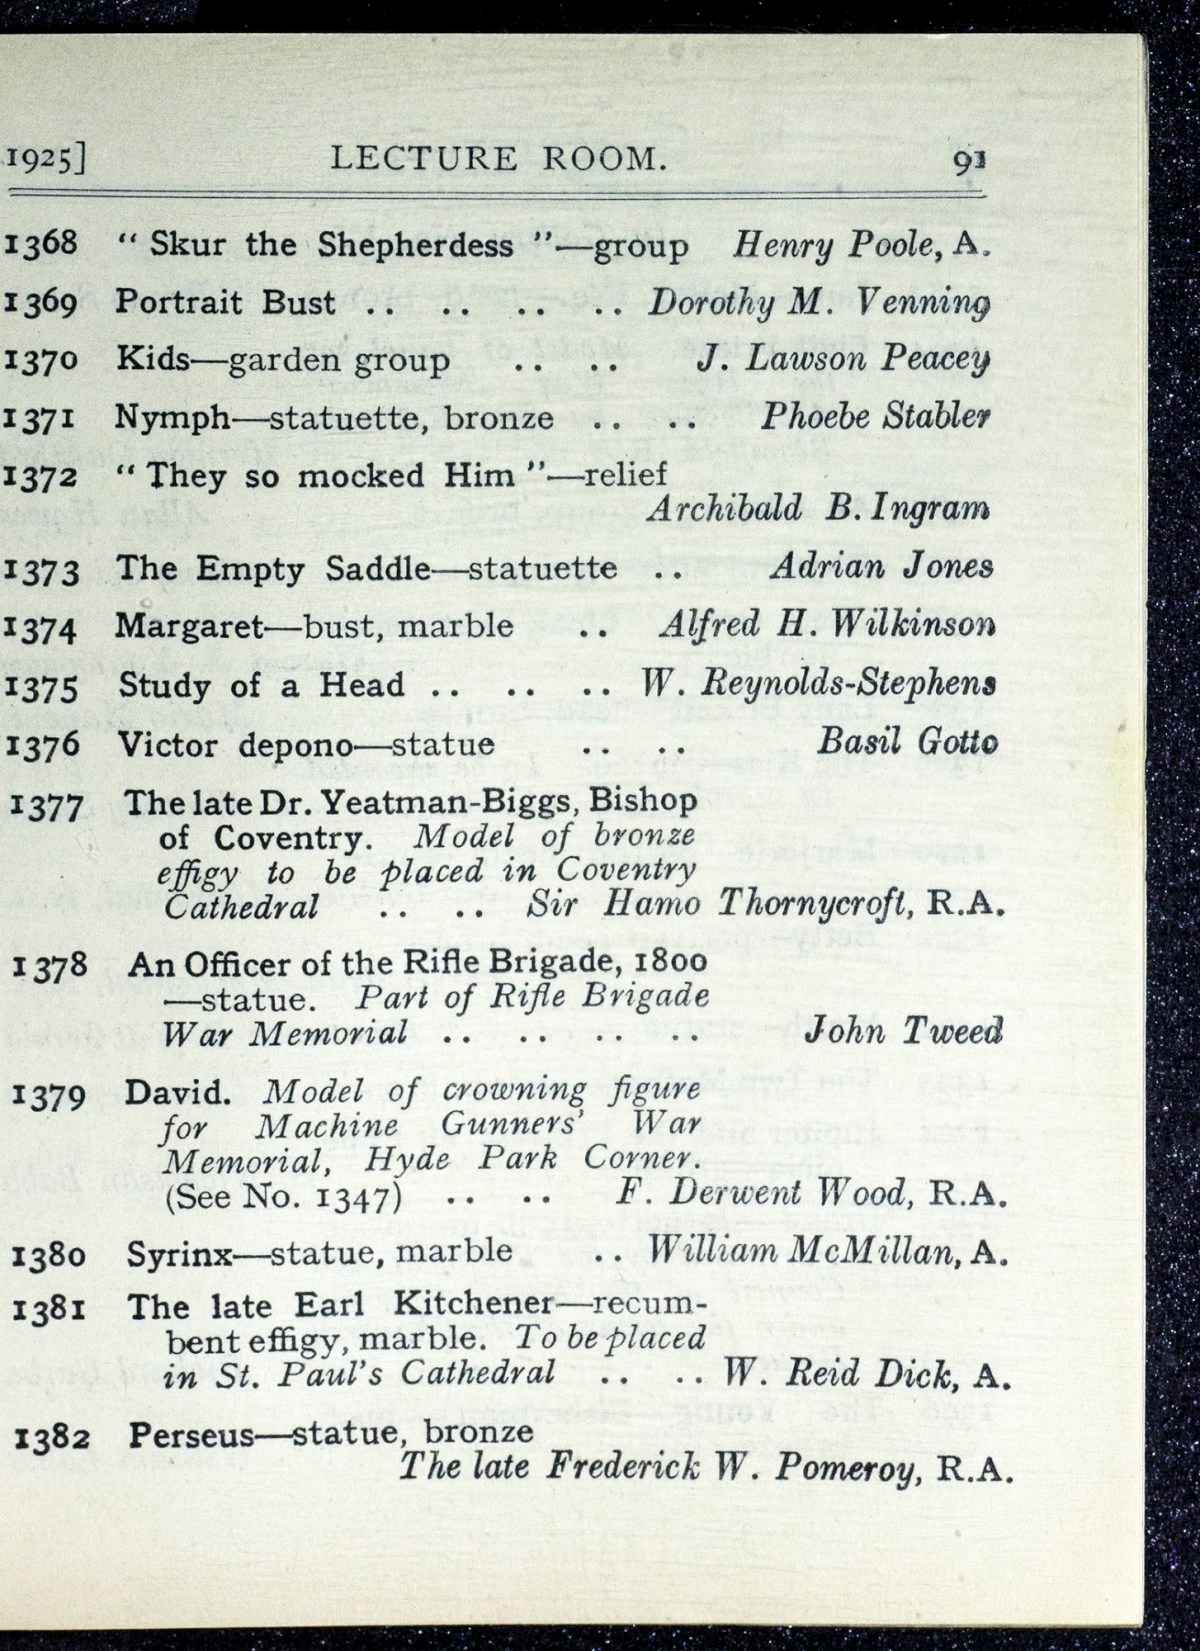 1925] LECTURE ROOM. 91
1368 “ Skur the Shepherdess ”—group Henry Poole, A.
1369 Portrait Bust .. .. .. .. Dorothy M. Venning
1370 Kids—garden group .. .. J. Lawson Peacey
1371 Nymph—statuette, bronze .. .. Phoebe Stabler
1372 “ They so mocked Him ”—relief
Archibald B. Ingram
1373 The Empty Saddle—statuette .. Adrian Jones
1374 Margaret—bust, marble .. Alfred H. Wilkinson
1375 Study of a Head .. .. .. W. Reynolds-Stephens
1376 Victor depono—statue .. .. Basil Gotto
1377 The late Dr. Yeatman-Biggs, Bishop
of Coventry. Model of bronze
effigy to be placed in Coventry
Cathedral .. .. Sir Hamo Thornycroft, R.A.
1378 An Officer of the Rifle Brigade, 1800
—statue. Part of Rifle Brigade
War Memorial .. .. .. .. John Tweed
1379 David. Model of crowning figure
for Machine Gunners’ War
Memorial, Hyde Park Corner.
(See No. 1347) .. .. F. Derwent Wood, R.A.
1380 Syrinx—statue, marble .. William McMillan, A.
1381 The late Earl Kitchener—recum-
bent effigy, marble. To be placed
in St. Paul’s Cathedral .. .. W. Reid Dick, A.
1382 Perseus—statue, bronze
The late Frederick W. Pomeroy, R.A.